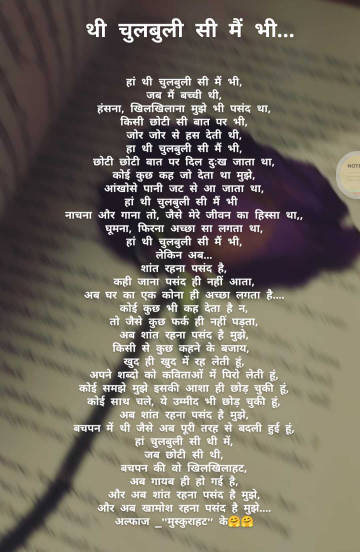 थी चुलबुली सी मैं भी...
हां थी चुलबुली सी मैं भी,
जब मैं बच्ची थी,
हंसना, खिलखिलाना मुझे भी पसंद था,
किसी छोटी सी बात पर भी,
जोर जोर से हस देती थी,
हा थी चुलबुली सी मैं भी,
छोटी छोटी बात पर दिल दुःख जाता था,
कोई कुछ कह जो देता था मुझे,
आंखोसे पानी जट से आ जाता था,
हां थी चुलबुली सी मैं भी
नाचना और गाना तो, जैसे मेरे जीवन का हिस्सा था,,
घूमना, फिरना अच्छा सा लगता था,
हां थी चुलबुली सी मैं भी,
लेकिन अब...
शांत रहना पसंद है,
कही जाना पसंद ही नहीं आता,
अब घर का एक कोना ही अच्छा लगता है....
कोई कुछ भी कह देता है न,
तो जैसे कुछ फर्क ही नहीं पड़ता,
अब शांत रहना पसंद है मुझे,
किसी से कुछ कहने के बजाय,
खुद ही खुद में रह लेती हूं,
अपने शब्दो को कविताओं में पिरो लेती हूं,
कोई समझे मुझे इसकी आशा ही छोड़ चुकी हूं,
कोई साथ चले, ये उम्मीद भी छोड़ चुकी हूं,
अब शांत रहना पसंद है मुझे,
बचपन में थी जैसे अब पूरी तरह से बदली हुई हूं,
हां चुलबुली सी थी में,
जब छोटी सी थी,
बचपन की वो खिलखिलाहट,
अब गायब ही हो गई है,
और अब शांत रहना पसंद है मुझे,
और अब खामोश रहना पसंद है मुझे....
अल्फाज _"मुस्कुराहट" के🤗🤗